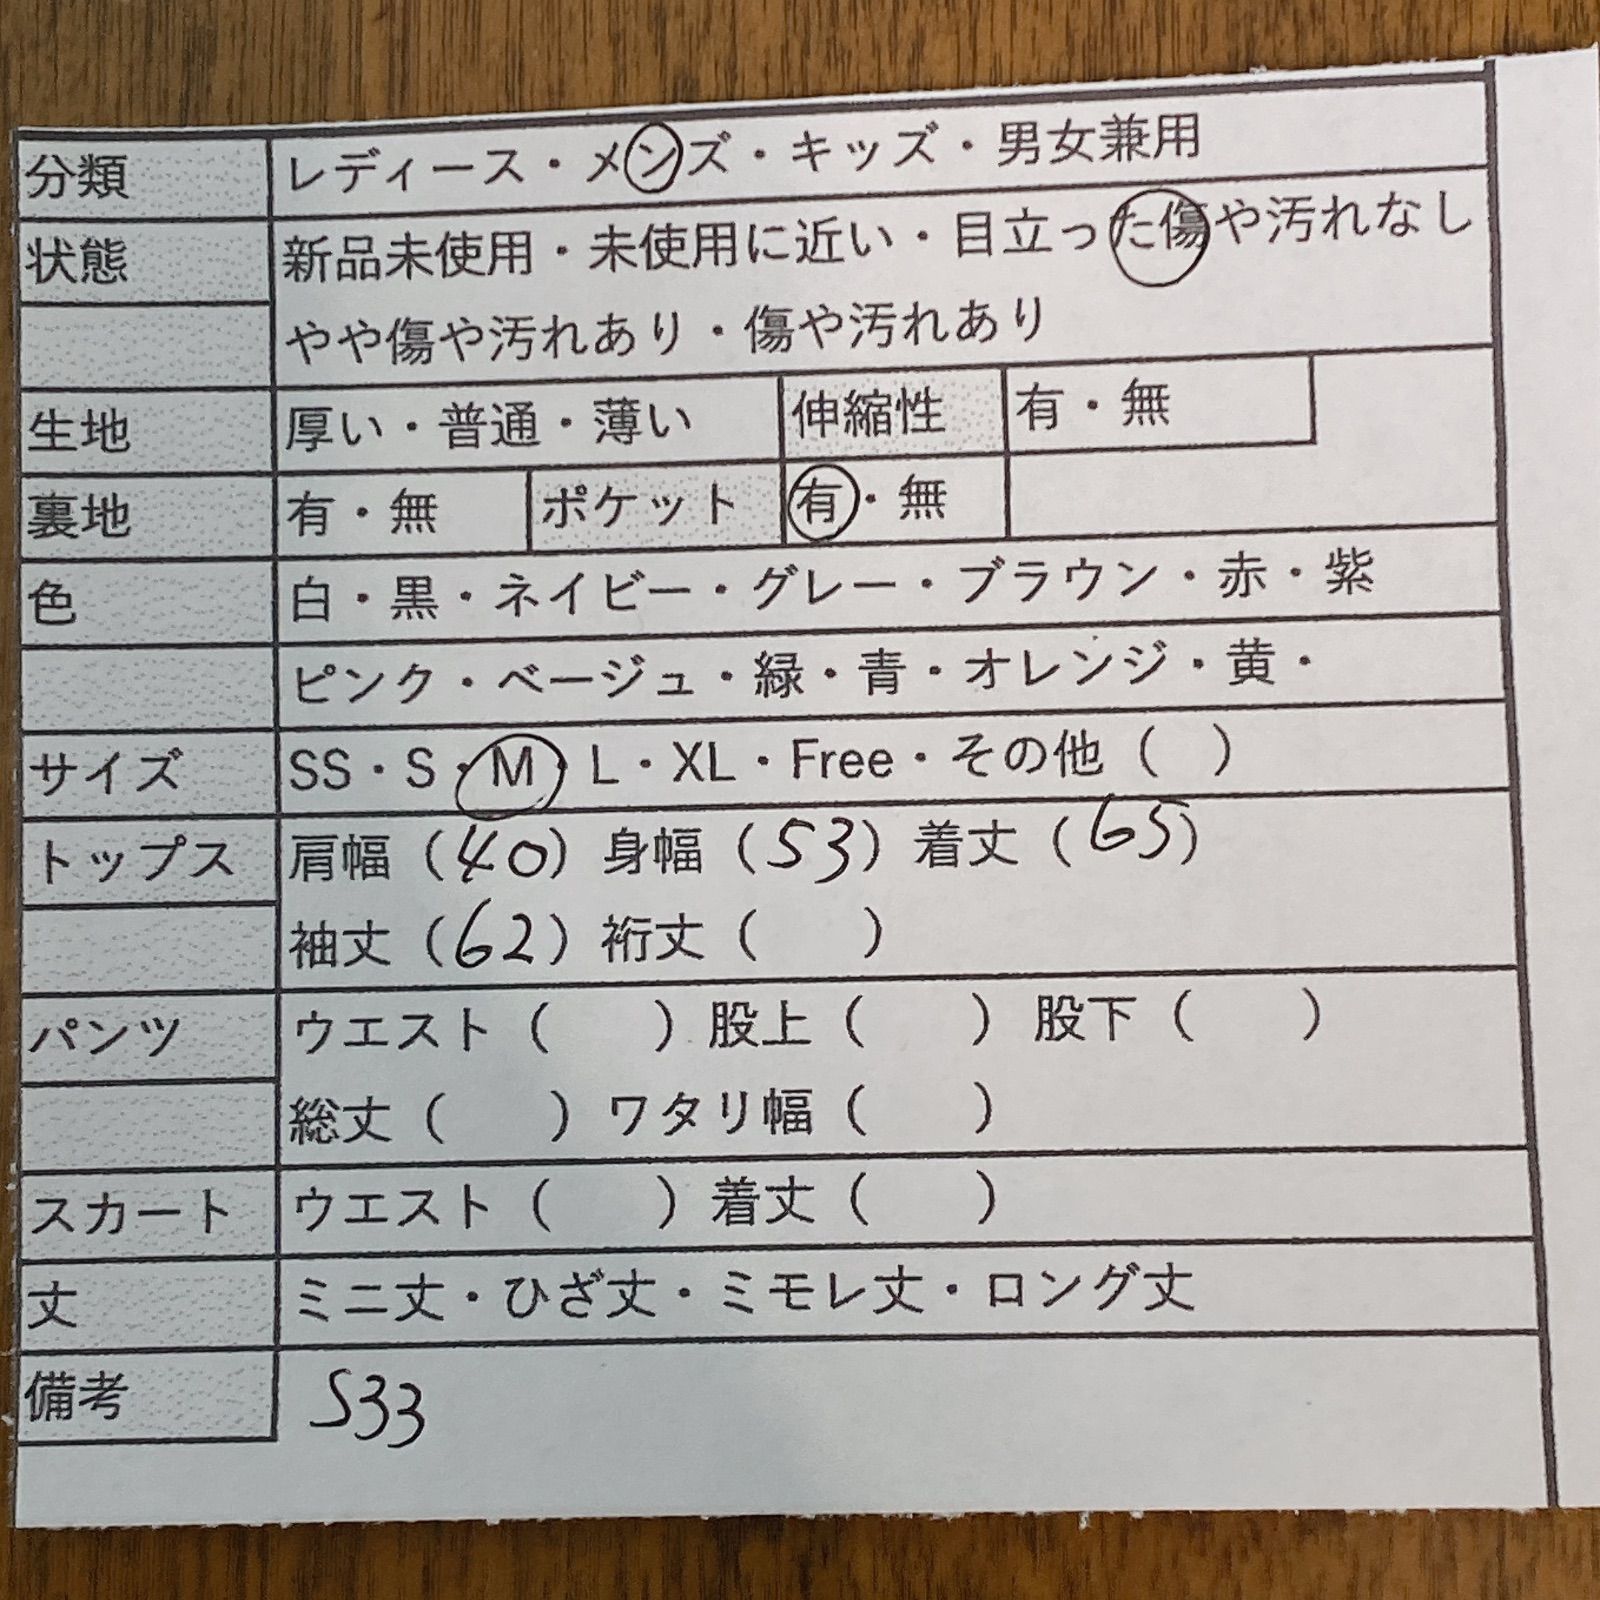 分類 レディース・メンズ・キッズ・男女兼用
状態 新品未使用・未使用に近い・目立った傷や汚れなし
やや傷や汚れあり・傷や汚れあり
生地 厚い・普通・薄い 伸縮性 有・無
裏地 有・無 ポケット 有・無
色 白・黒・ネイビー・グレー・ブラウン・赤・紫
ピンク・ベージュ・緑・青・オレンジ・黄・
サイズ SS・S・M・L・XL・Free・その他（ ）
トップス 肩幅（40）身幅（53）着丈（65）
袖丈（62）裄丈（ ）
パンツ ウエスト（ ）股上（ ）股下（ ）
総丈（ ）ワタリ幅（ ）
スカート ウエスト（ ）着丈（ ）
丈 ミニ丈・ひざ丈・ミモレ丈・ロング丈
備考 S33